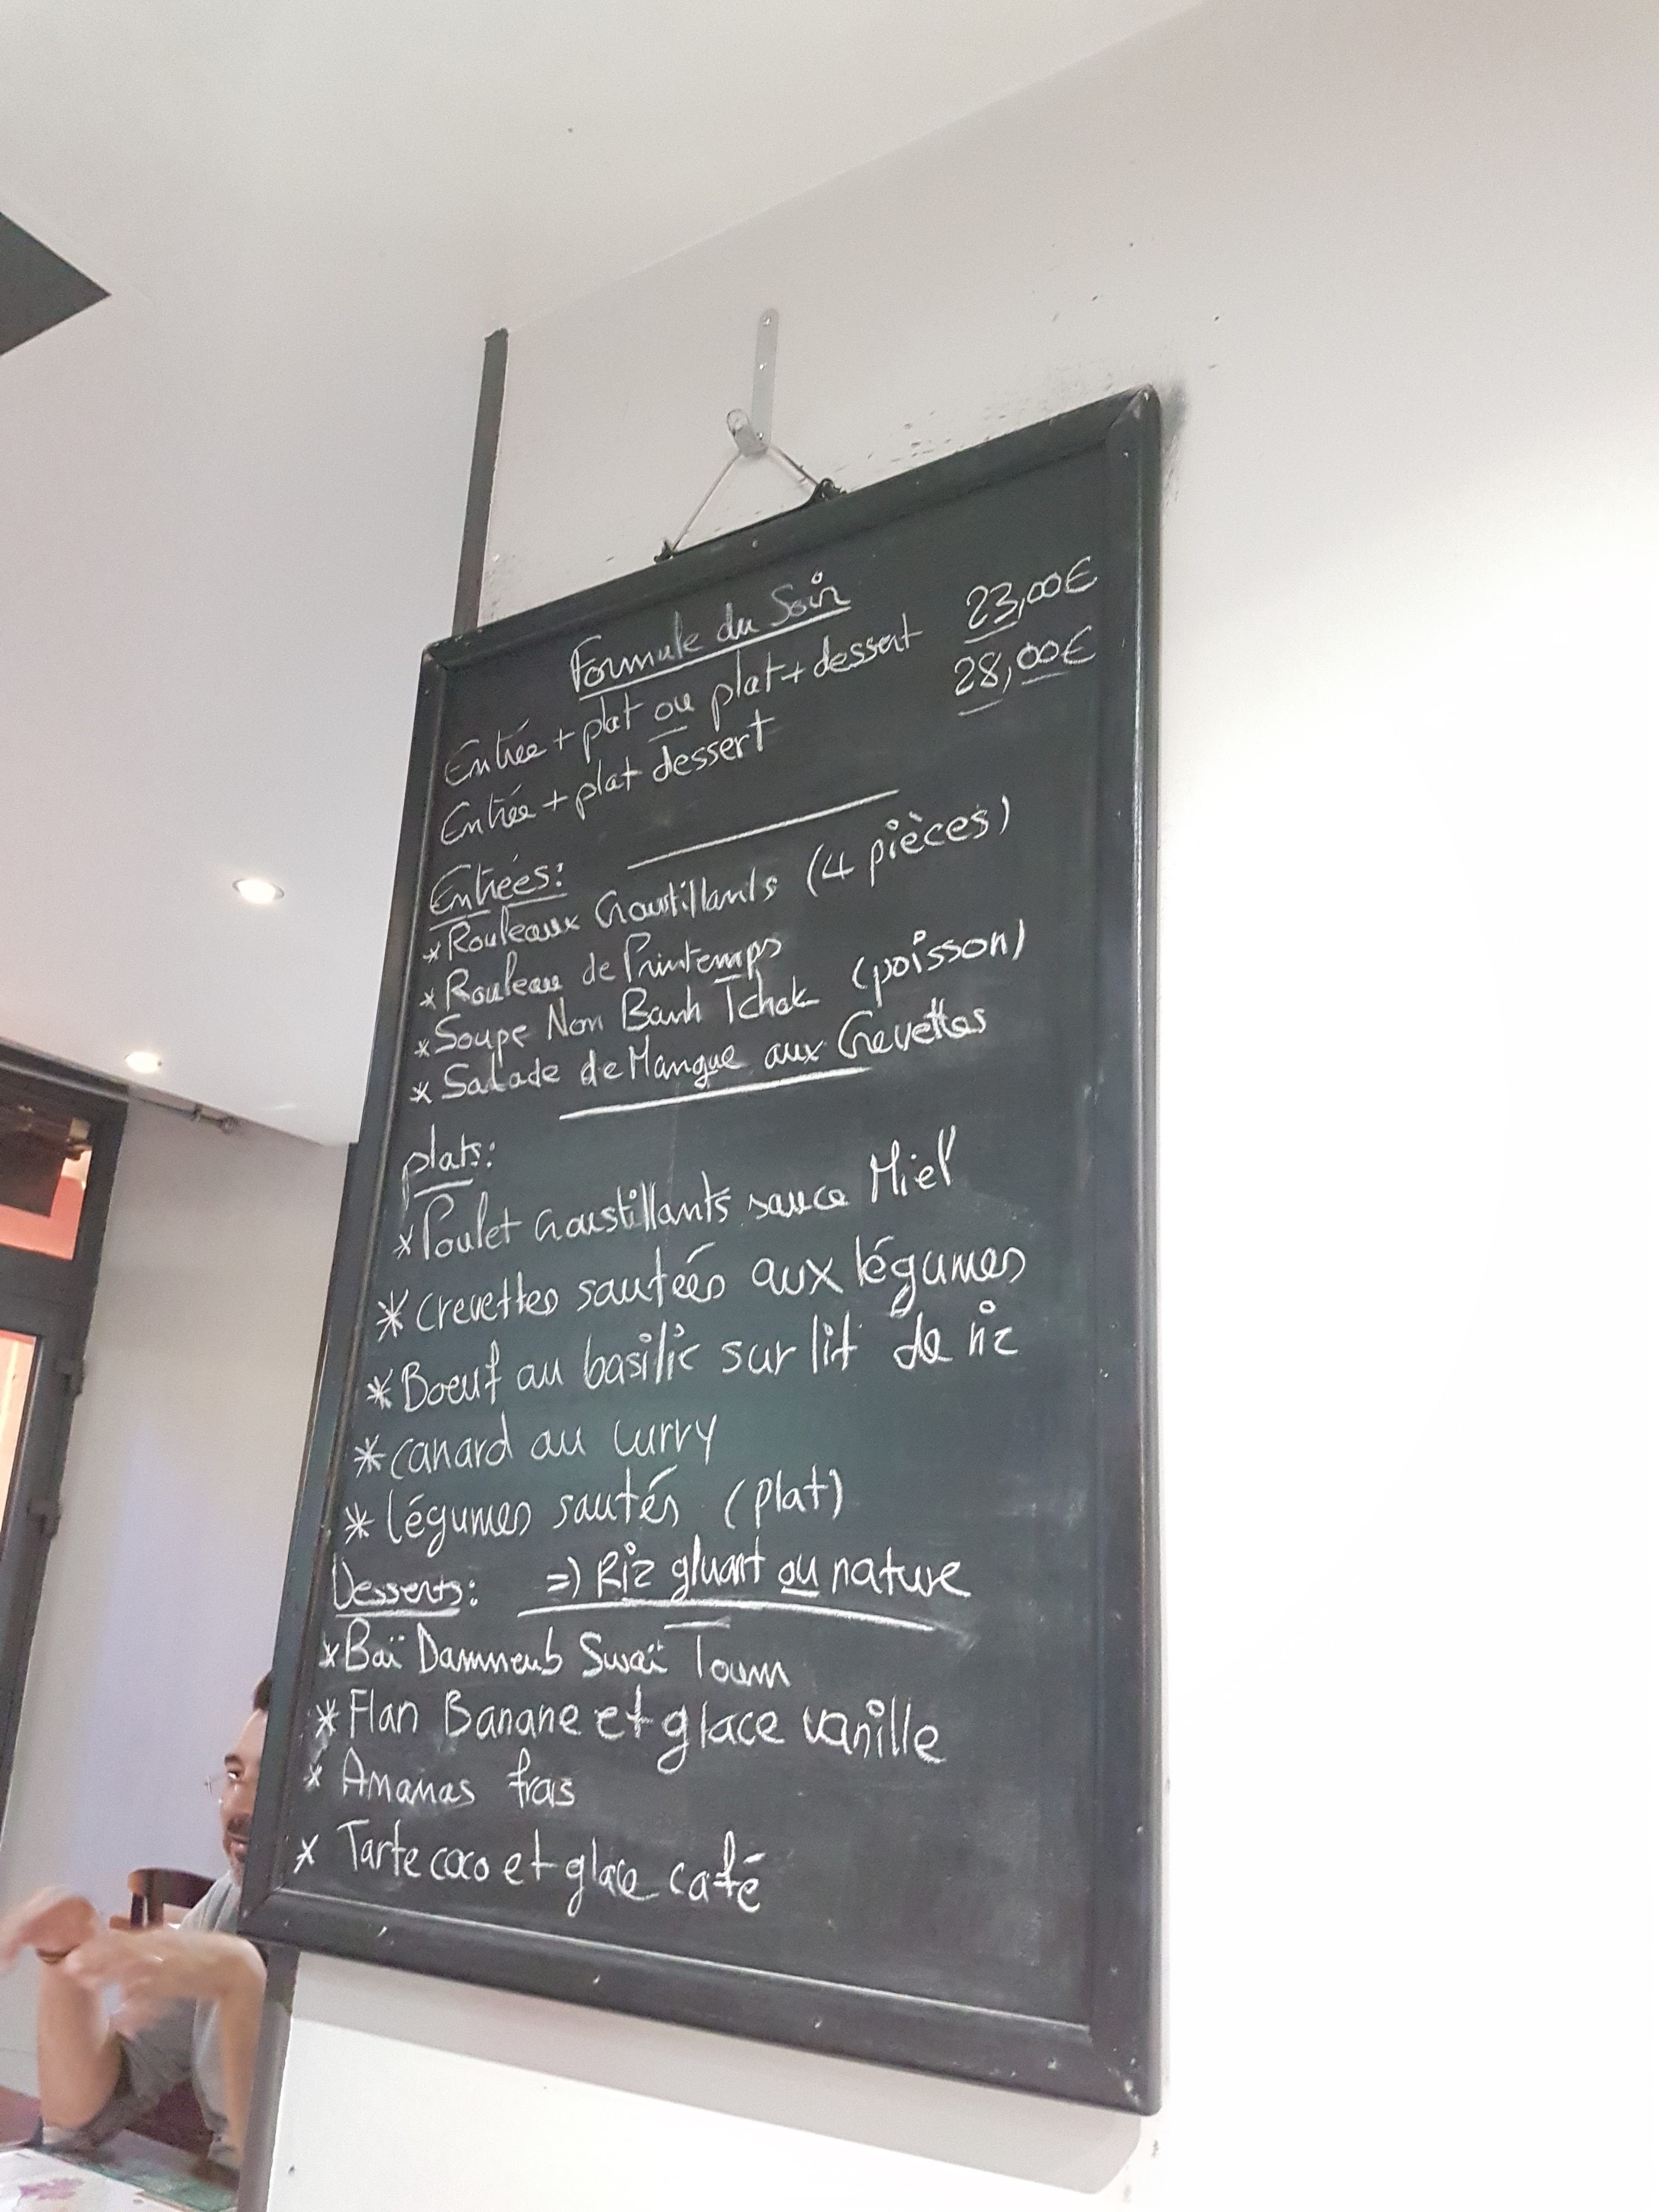 Formule du Soir
Entrée + plat ou plat + dessert 23,00€
Entrée + plat dessert 28,00€
Entrées:
* Rouleaux Croustillants (4 pièces)
* Rouleau de Printemps
* Soupe Nom Banh Tchok (poisson)
* Salade de Mangue aux Crevettes
plats:
* Poulet Croustillants sauce Miel
* crevettes sautées aux légumes
* Boeuf au basilic sur lit de riz
* canard au curry
* légumes sautés (plat)
Desserts: => Riz gluant ou nature
* Baï Dammeub Swaï Toum
* Flan Banane et glace vanille
* Ananas frais
* Tarte coco et glace café